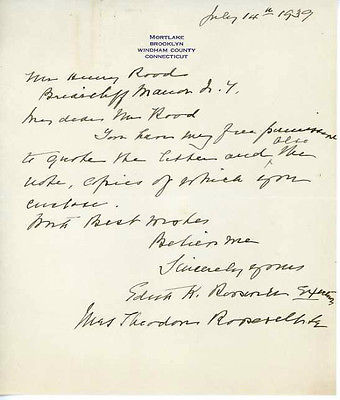 July 14th 1939
MORTLAKE
BROOKLYN
WINDHAM COUNTY
CONNECTICUT
Mr Henry Rood
Briarcliff Manor N.Y.
My dear Mr Rood
You have my free permission
to quote the letter and also the
note, copies of which you
enclose.
With Best Wishes
Believe me
Sincerely yours
Edith K. Roosevelt
Mrs Theodore Roosevelt